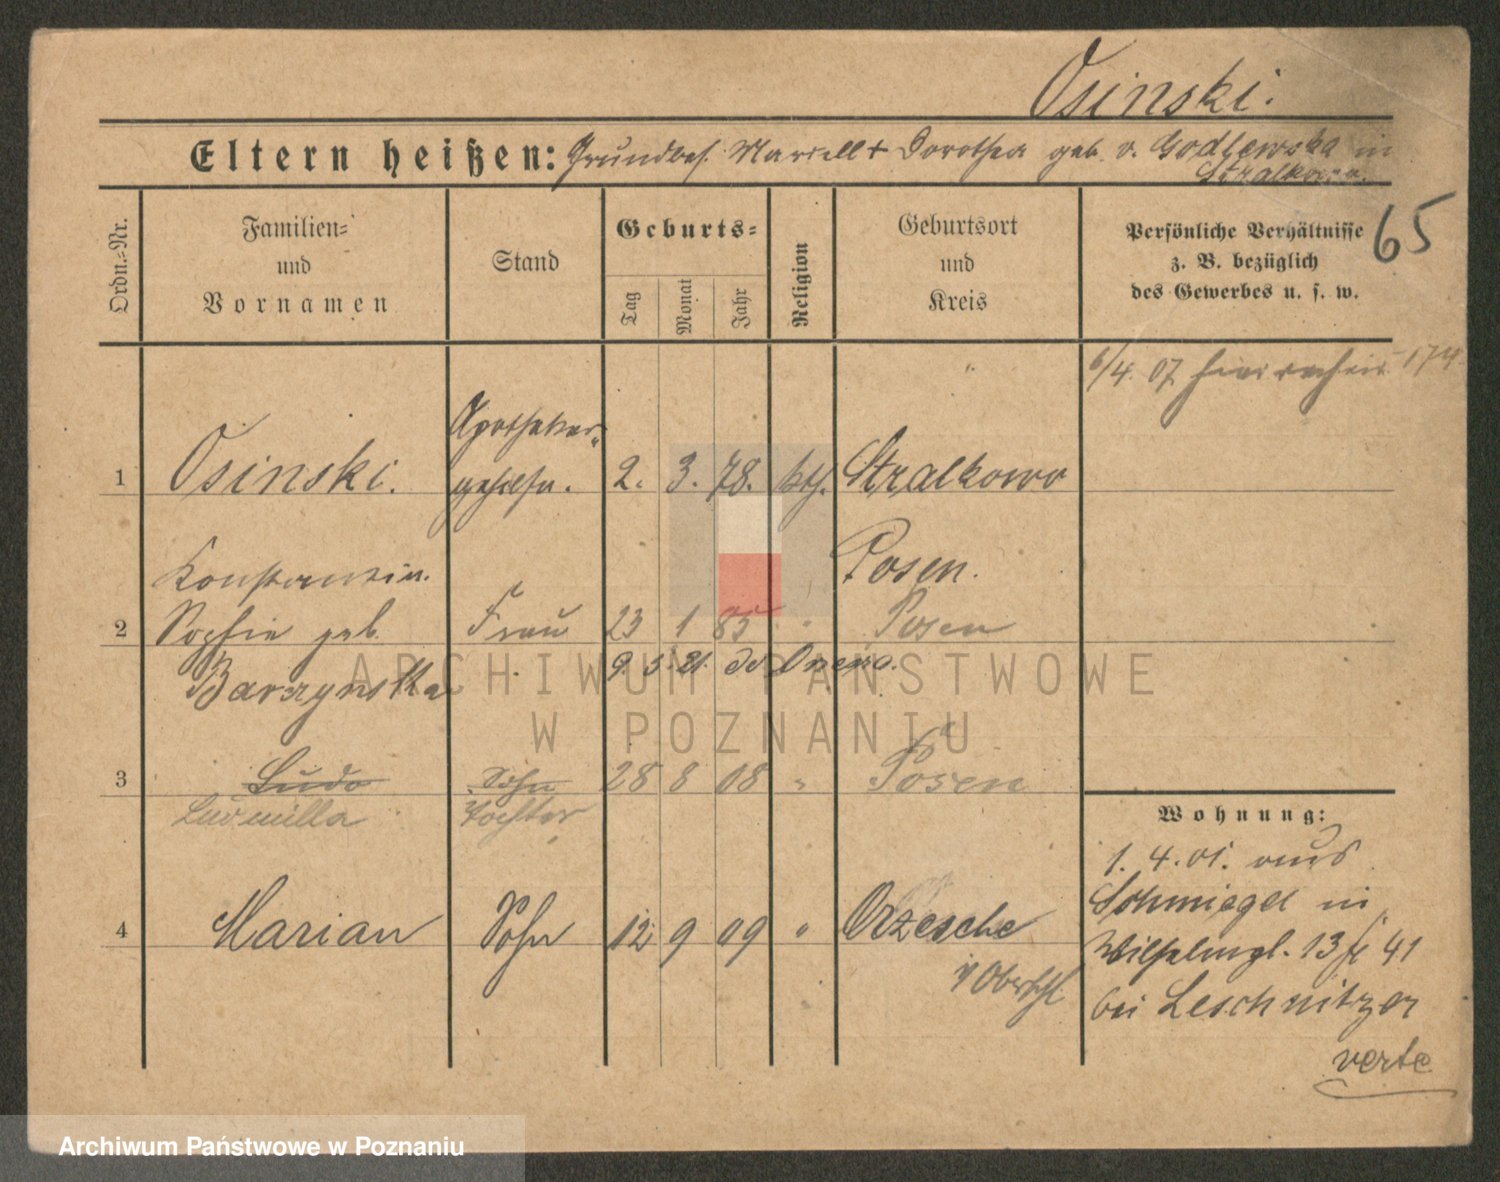 Osinski.
Eltern heißen: Grundbes. Marcell + Dorothea geb. v. Godlewska in
Stralkowo.
65
Ordn.=Nr.
Familien=
und
Vornamen
Stand
Geburts=
Tag
Monat
Jahr
Religion
Geburtsort
und
Kreis
Persönliche Verhältnisse
z. B. bezüglich
des Gewerbes u. s. w.
6/4. 07
Apotheker
1 Osinski. gehilfe. 2. 3. 78. kth. Stralkowo
Konstantin. Posen.
2 Sophie geb. Frau 23 1 85 " Posen
Barzynska 9. 5. 21.
3 Ludo Sohn 28 8 08 " Posen
Ludmilla Tochter
Wohnung:
1. 4. 01. aus
Schmiegel in
4 Marian Sohn 12 9 09 " Orzesche
i/ Oberschl
Wilhelmpl. 13 41
bei Leschnitzer
verte
ARCHIWUM PAŃSTWOWE
W POZNANIU
Archiwum Państwowe w Poznaniu